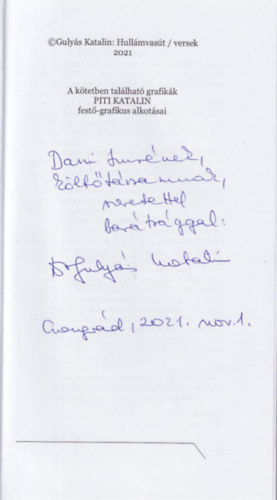 ©Gulyás Katalin: Hullámvasút / versek
2021
A kötetben található grafikák
PITI KATALIN
festő-grafikus alkotásai
Dani Imrének,
költőtársamnak,
szeretettel
barátsággal:
Dr Gulyás Katalin
Csongrád, 2021. nov. 1.